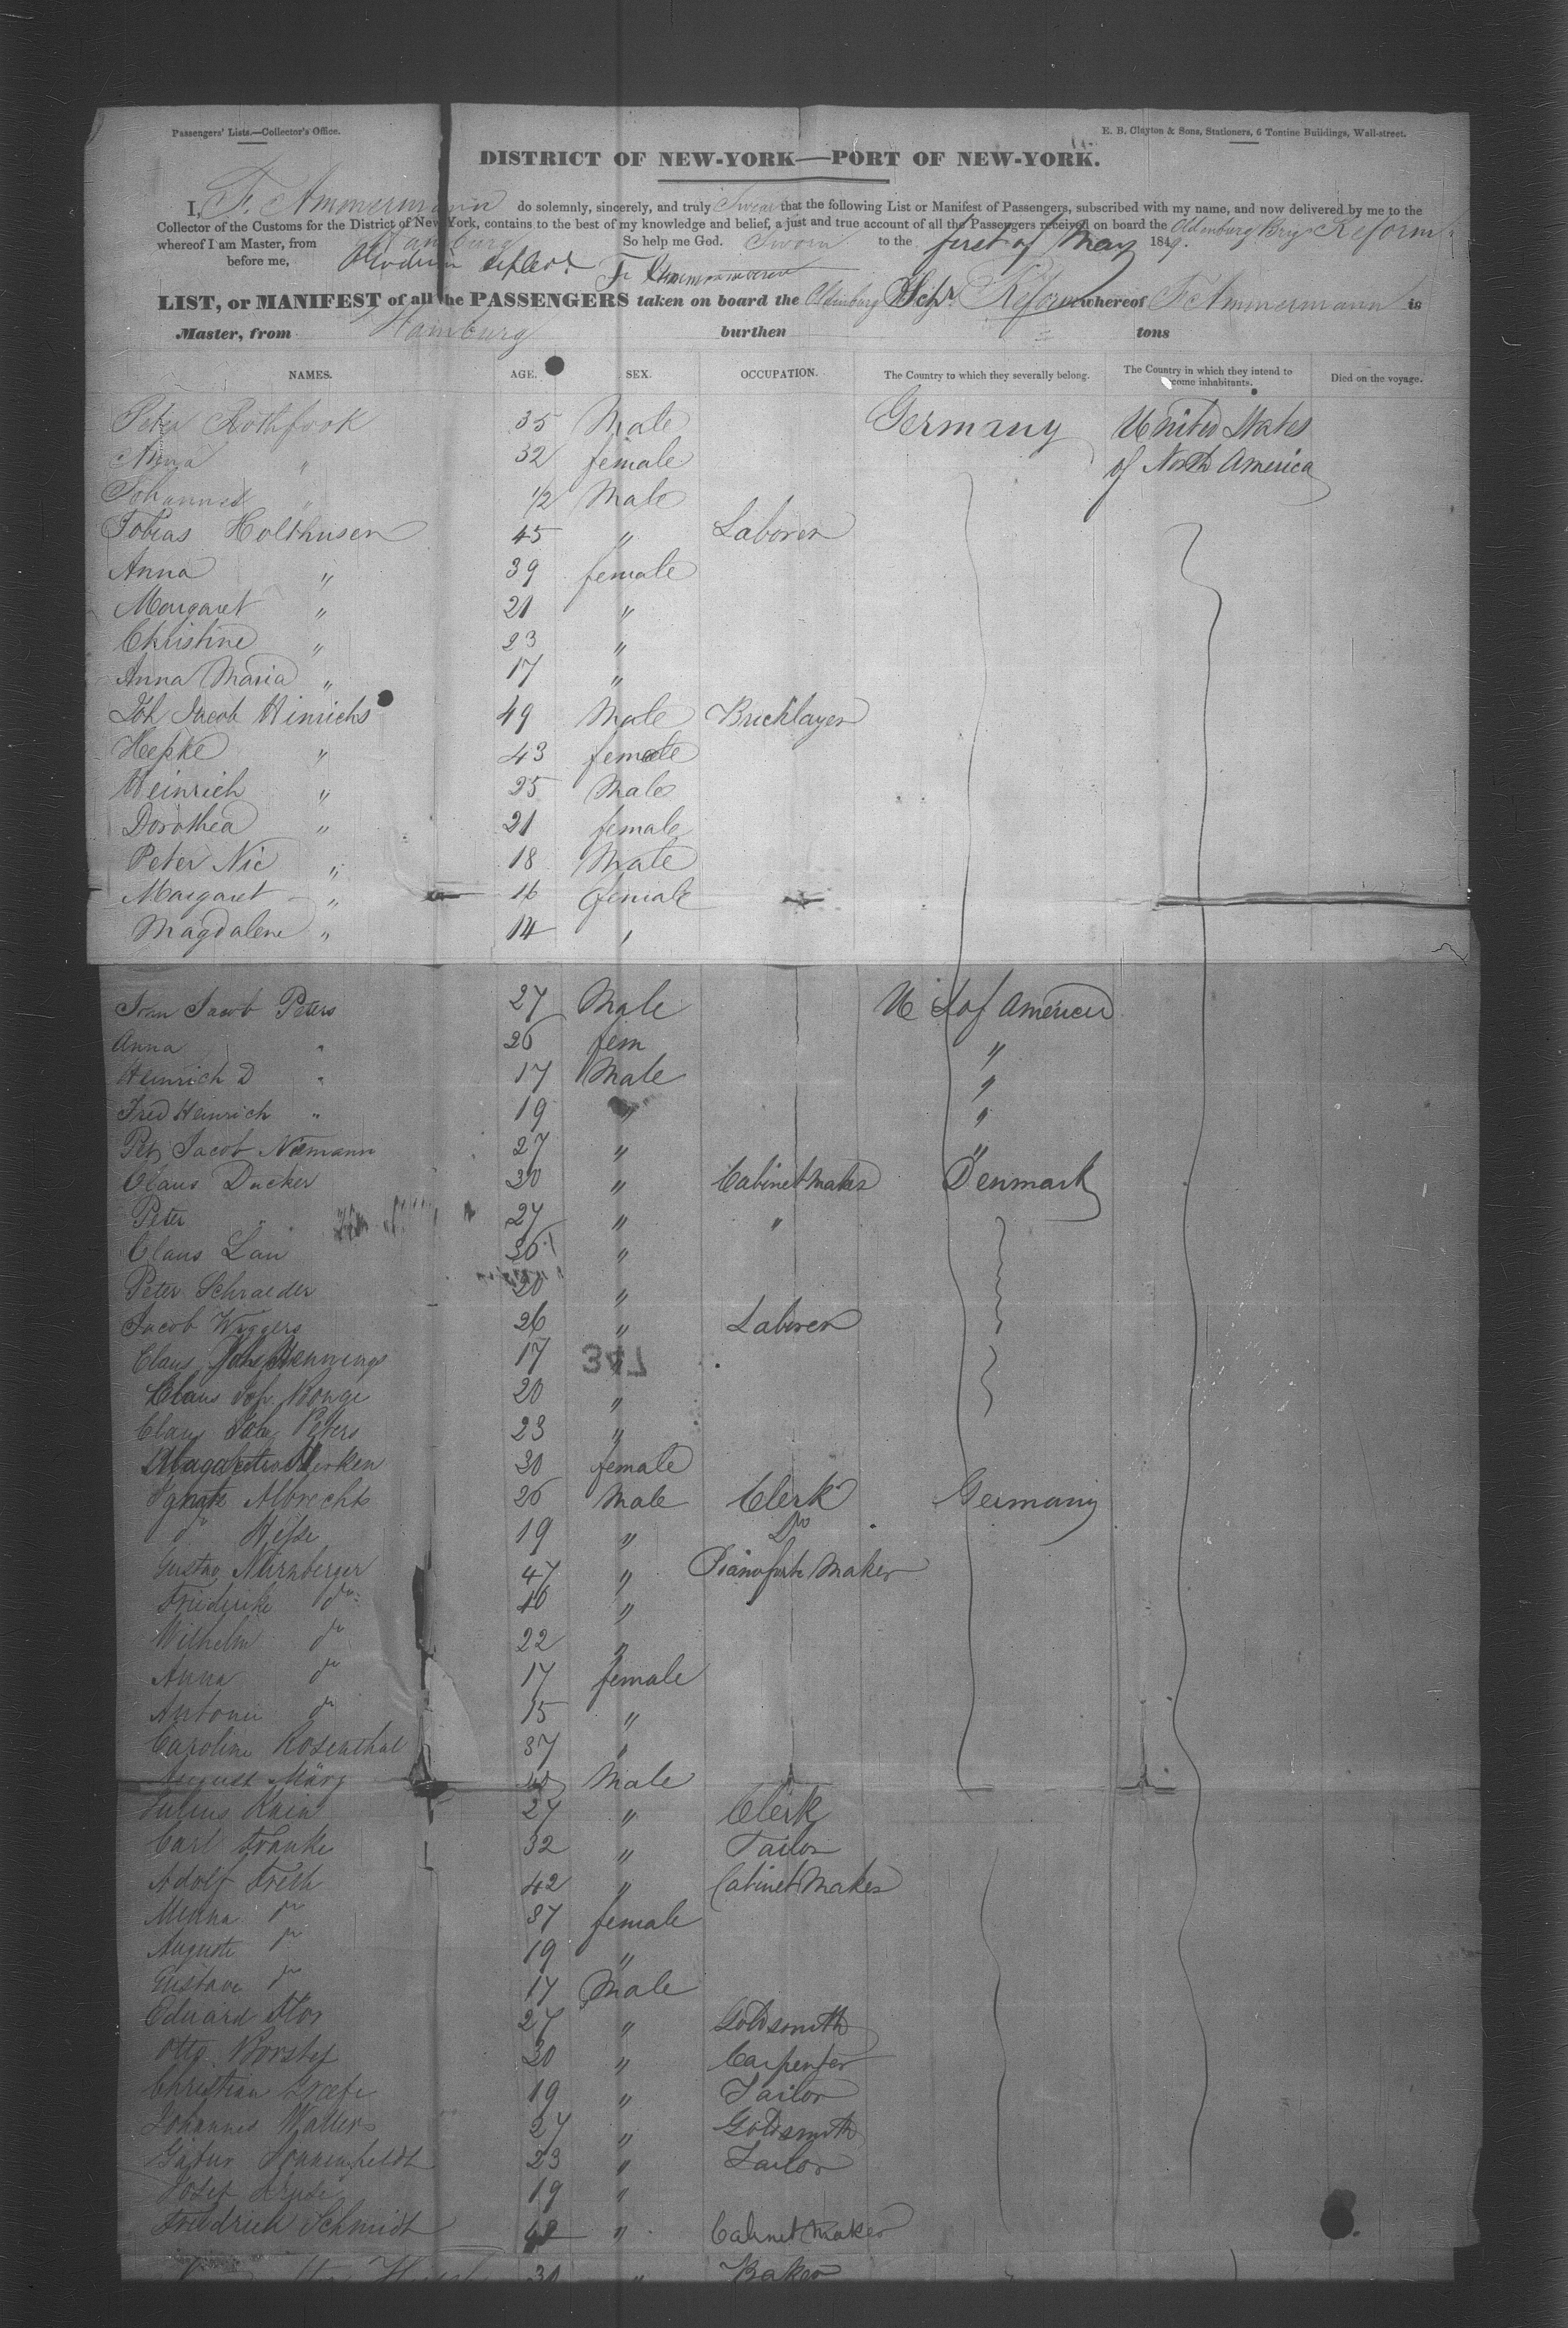 Passengers' Lists.—Collector's Office.
E. B. Clayton & Sons, Stationers, 6 Tontine Buildings, Wall-street.
DISTRICT OF NEW-YORK—PORT OF NEW-YORK.
I, F. Ammermann do solemnly, sincerely, and truly Swear that the following List or Manifest of Passengers, subscribed with my name, and now delivered by me to the
Collector of the Customs for the District of New York, contains to the best of my knowledge and belief, a just and true account of all the Passengers received on board the Oldenburg Brig Reform
whereof I am Master, from Hamburg So help me God. Sworn to the first of May 1849.
before me, F. Ammermann
LIST, or MANIFEST of all the PASSENGERS taken on board the Oldenburg Schr Reform whereof F. Ammermann is
Master, from Hamburg burthen tons
NAMES. AGE. SEX. OCCUPATION. The Country to which they severally belong. The Country in which they intend to become inhabitants. Died on the voyage.
Peter Rothfook 35 Male Germany United States
Anna " 32 female of North America
Johannes " 1/2 Male
Tobias Holthusen 45 " Laborer
Anna " 39 female
Margaret " 21 "
Christine " 23 "
Anna Maria " 17 "
Joh Jacob Hinrichs 49 Male Bricklayer
Hepke " 43 female
Heinrich " 25 Male
Dorothea " 21 female
Peter Nic " 18 Male
Margaret " 16 female
Magdalene " 14 "
Jacob Peters 27 Male U S of America
Anna " 26 fem "
Heinrich D " 17 Male "
Fred Heinrich " 19 " "
Pet Jacob Niemann 27 " "
Claus Ducker 30 " Cabinet Maker Denmark
Peter " 27 " "
Claus Lau 36 "
Peter Schraeder 20 "
Jacob Wiggers 26 " Laborer
Claus Hennings 17 "
347
Claus Joh. Ronge 20 "
Claus Joh Peters 23 "
30 female
Albrechts 26 Male Clerk Germany
do Hesse 19 " Do
Gustav Nürnberger 47 " Pianoforte Maker
Friedericke do 16 "
Wilhelm do 22 "
Anna do 17 female
Antonie do 15 "
Caroline Rosenthal 37 "
August März Male
Julius Rain 27 " Clerk
Carl Franke 32 " Tailor
Adolf Fresh 42 " Cabinet Maker
Minna do 37 female
Auguste do 19 "
Gustave do 17 Male
Eduard Flor 27 " Goldsmith
Otto Borstel 30 " Carpenter
Christian Graefe 19 " Tailor
Johannes Walters 27 " Goldsmith
Sonnenfeldt 23 " Tailor
Josef 19 "
Friedrich Schmidt 42 " Cabinet Maker
30 " Baker